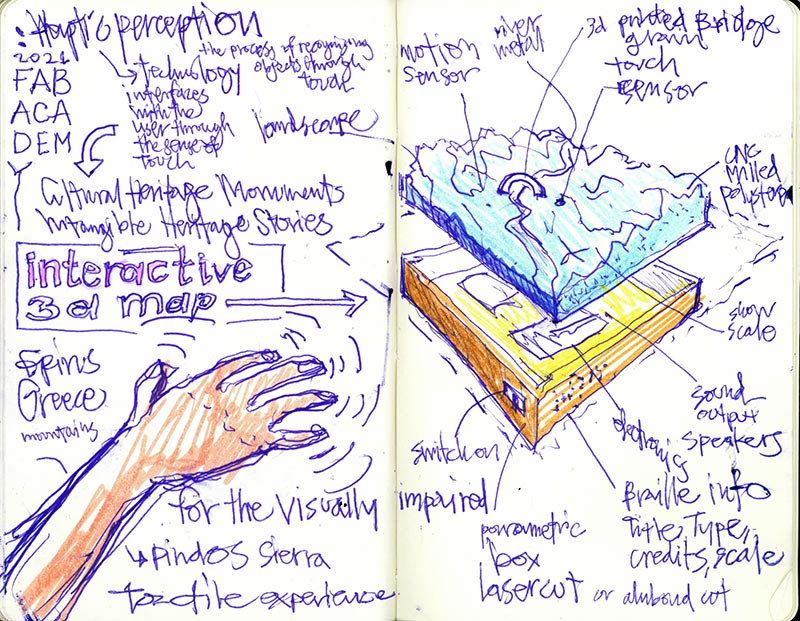 : Haptic perception
2021
FAB
ACA
DEM
the process of recognizing
objects through
touch
technology
interfaces
with the
user through
the sense of
touch
landscape
Cultural Heritage Monuments
Intangible Heritage Stories
interactive
3d map
Epirus
Greece
mountains
for the visually
impaired
↳ Pindos Sierra
tactile experience
motion
sensor
river
metal
3d printed Bridge
grain
touch
sensor
CNC
Milled
show
scale
sound
output
speakers
electronics
switch on
Braille info
Title, Type,
credits, scale
parametric
box
lasercut or alubond cut